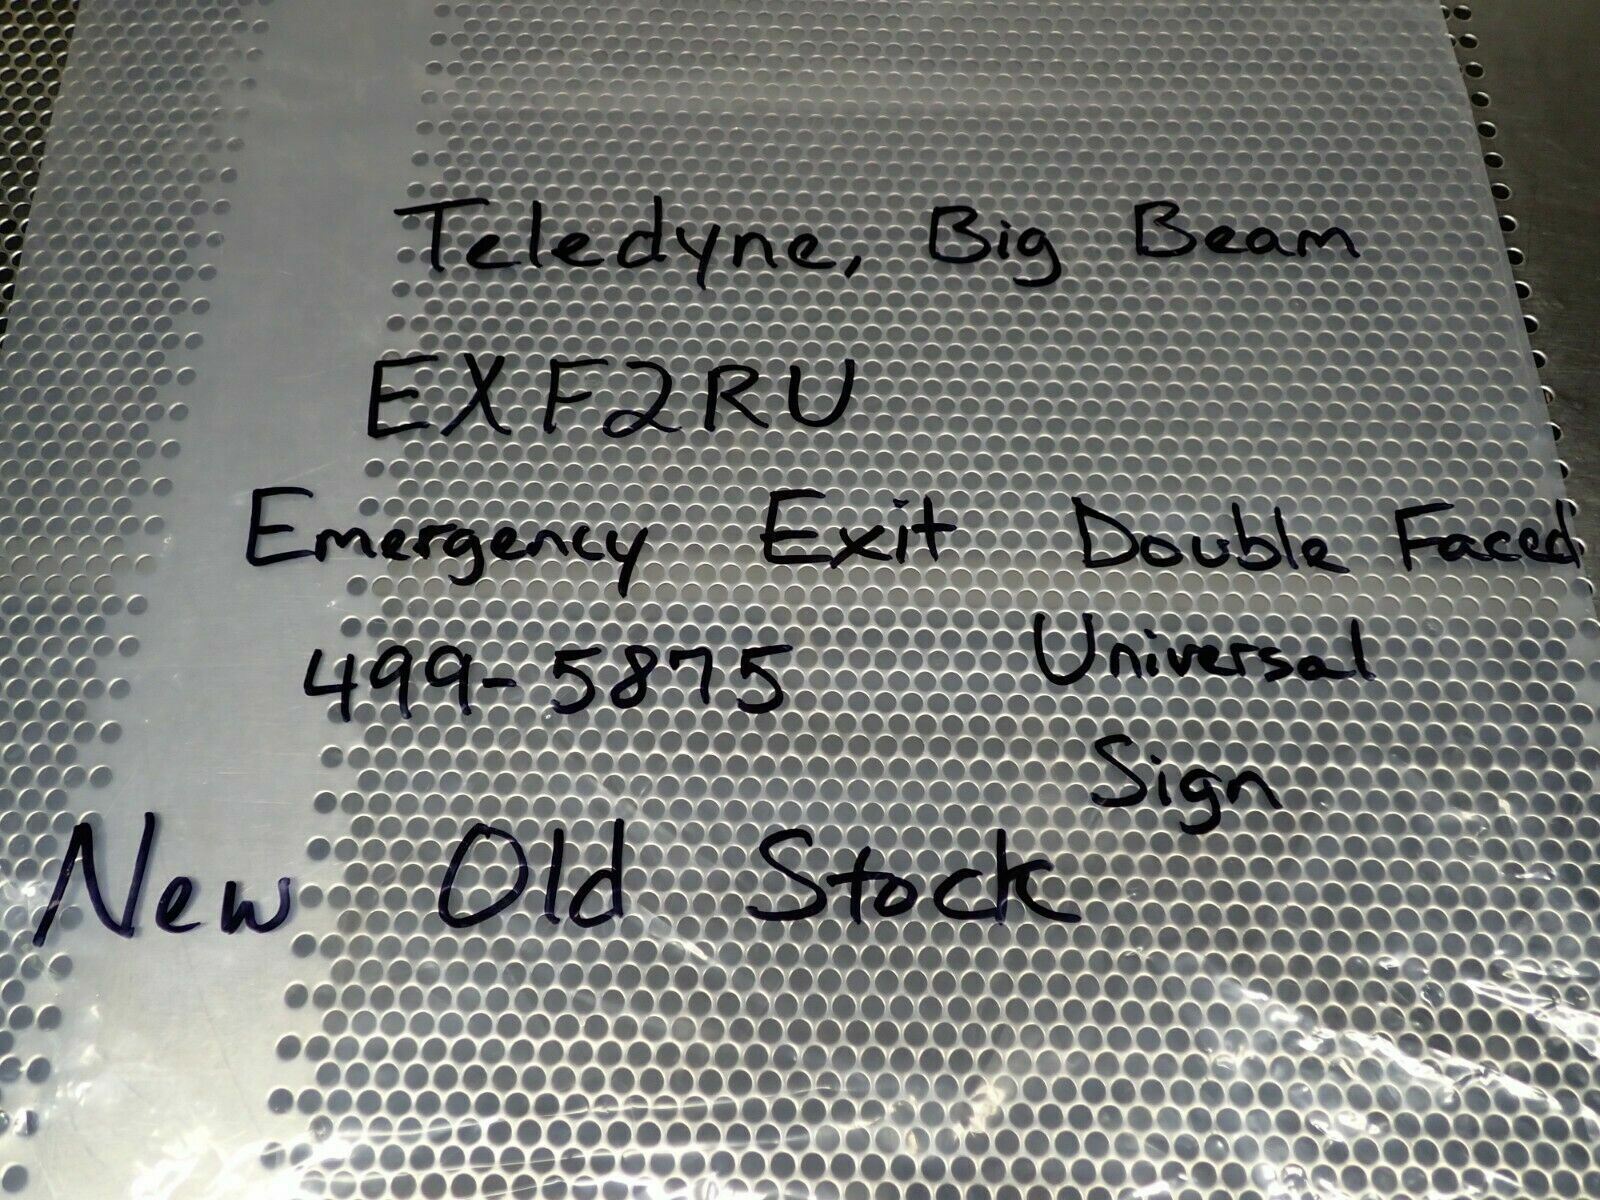 Teledyne, Big Beam
EXF2RU
Emergency Exit Double Faced
499-5875 Universal
Sign
New Old Stock